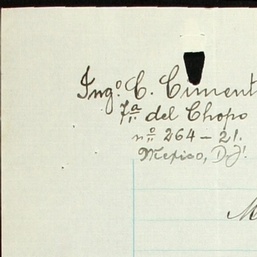 Ingº. C. Ciment
7ª del Chopo
nº 264 – 21.
Mexico, D.F.
M